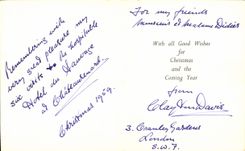 Remembering with
very great pleasure my
six visits to the hospitable
Hotel du Hameau
at Châteauneuf.
Christmas 1959.
For my friends
Monsieur et Madame Didier
With all Good Wishes
for
Christmas
and the
Coming Year
from
Clay Davis
3. Cranley Gardens
London
S.W.7.